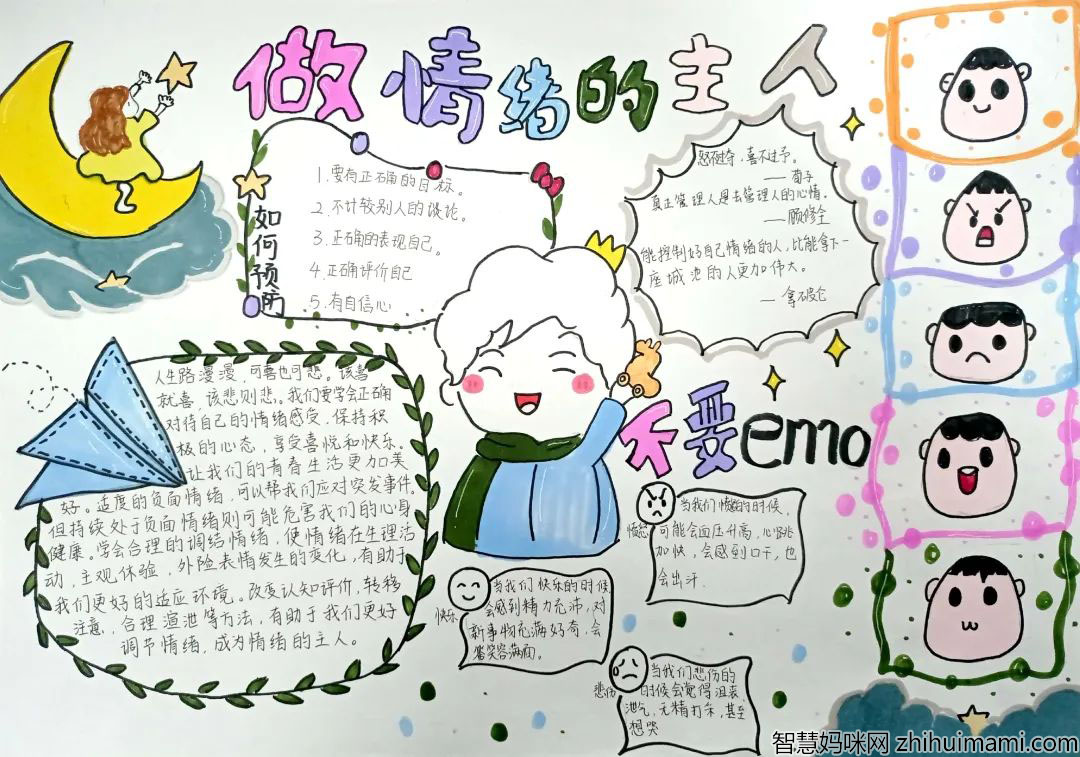 做情绪的主人
如何预防
1.要有正确的目标。
2.不计较别人的谈论。
3.正确的表现自己。
4.正确评价自己
5.有自信心
怒不过夺，喜不过予。
——荀子
真正管理人是去管理人的心情。
——顾修全
能控制好自己情绪的人，比能拿下一
座城池的人更加伟大。
——拿破仑
人生路漫漫，可喜也可悲。该喜
就喜，该悲则悲。我们要学会正确
对待自己的情绪感受，保持积
极的心态，享受喜悦和快乐。
让我们的青春生活更加美
好。适度的负面情绪，可以帮我们应对突发事件。
但持续处于负面情绪则可能危害我们的心身
健康。学会合理的调结情绪，使情绪在生理活
动，主观体验，外险表情发生的变化，有助于
我们更好的适应环境。改变认知评价，转移
注意，合理渲泄等方法，有助于我们更好
调节情绪，成为情绪的主人。
不要emo
愤怒
当我们愤怒的时候，
可能会血压升高，心跳
加快，会感到口干，也
会出汗.
快乐
当我们快乐的时候
会感到精力充沛，对
新事物充满好奇，会
笑容满面。
悲伤
当我们悲伤的
时候会觉得沮丧，
泄气，无精打采，甚至
想哭
智慧妈咪网 zhihuimami.com